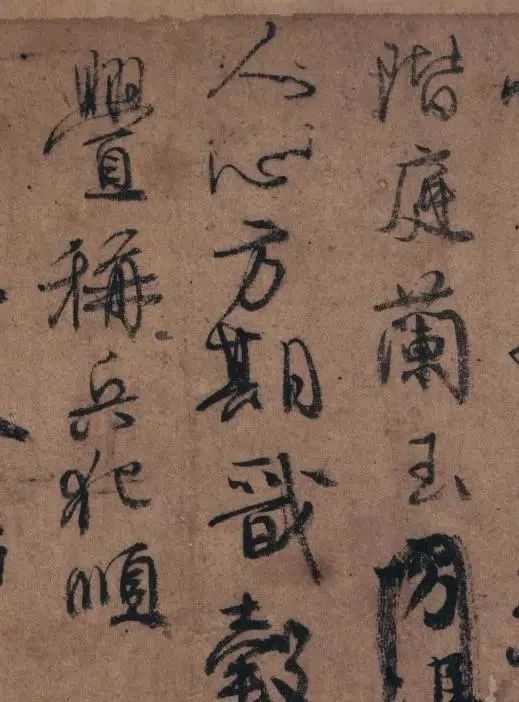 階庭蘭玉
人心方期戩穀
舋稱兵犯順